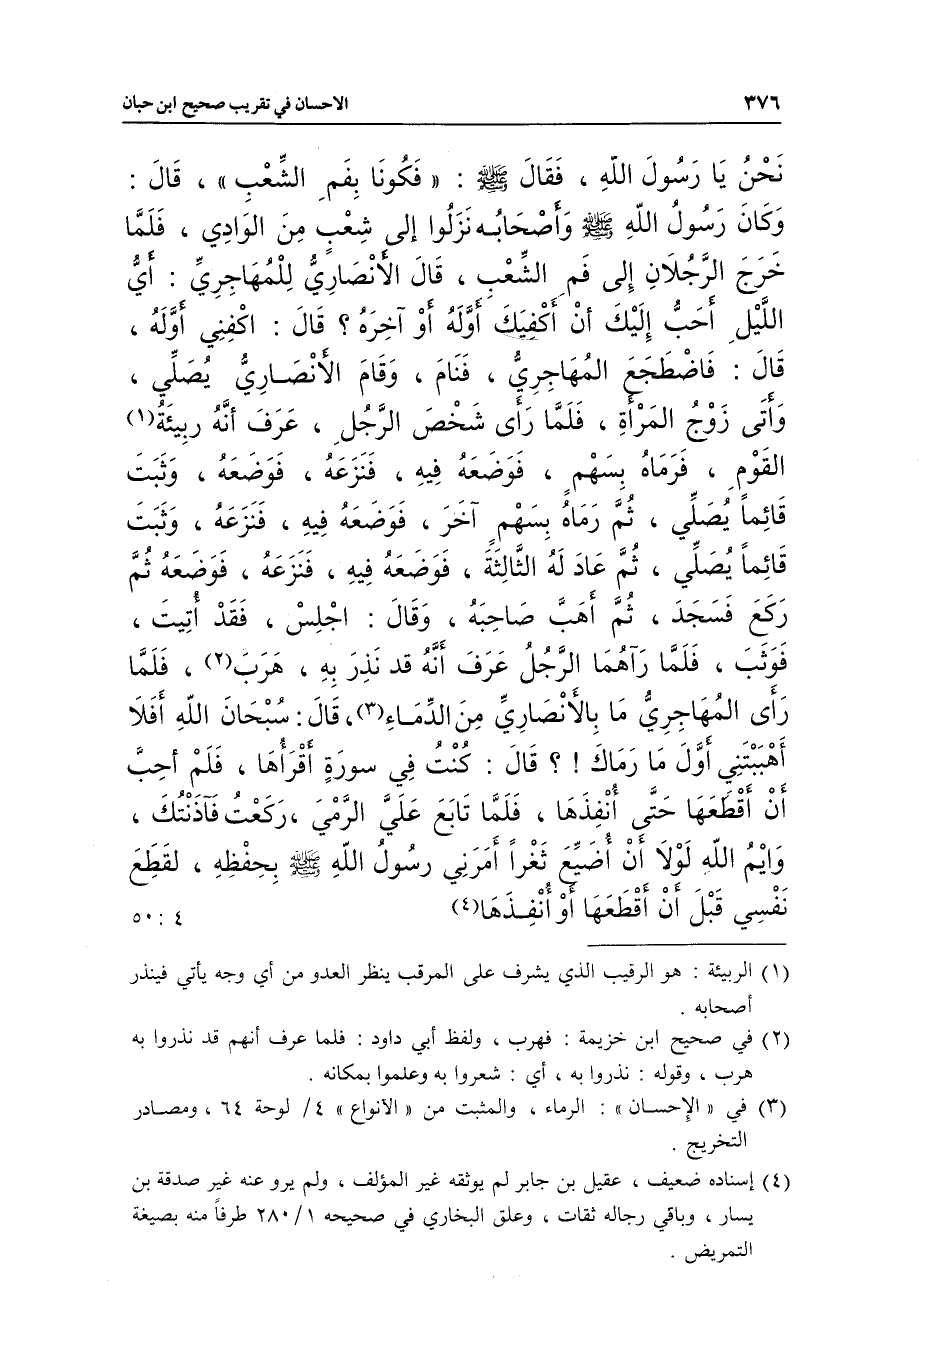 ٣٧٦ الاحسان في تقريب صحيح ابن حبان
نَحْنُ يَا رَسُولَ اللّهِ ، فَقَالَ ﷺ : « فَكُونَا بِفَمِ الشِّعْبِ » ، قَالَ :
وَكَانَ رَسُولُ اللّهِ ﷺ وَأَصْحَابُه نَزَلُوا إلى شِعْبٍ مِنَ الوَادِي ، فَلَمَّا
خَرَجَ الرَّجُلَانِ إلى فَمِ الشِّعْبِ ، قَالَ الأَنْصَارِيُّ لِلْمُهَاجِرِيِّ : أَيُّ
اللَّيْلِ أَحَبُّ إِلَيْكَ أنْ أَكْفِيَكَ أَوَّلَهُ أَوْ آخِرَهُ ؟ قَالَ : اكْفِنِي أَوَّلَهُ ،
قَالَ : فَاضْطَجَعَ المُهَاجِرِيُّ ، فَنَامَ ، وَقَامَ الأَنْصَارِيُّ يُصَلِّي ،
وَأَتَى زَوْجُ المَرْأَةِ ، فَلَمَّا رَأى شَخْصَ الرَّجُلِ ، عَرَفَ أنَّهُ ربِيئَةُ(١)
القَوْمِ ، فَرَمَاهُ بِسَهْمٍ ، فَوَضَعَهُ فِيهِ ، فَنَزَعَهُ ، فَوَضَعَهُ ، وَثَبَتَ
قَائِماً يُصَلِّي ، ثُمَّ رَمَاهُ بِسَهْمٍ آخَرَ ، فَوَضَعَهُ فِيهِ ، فَنَزَعَهُ ، وَثَبَتَ
قَائِماً يُصَلِّي ، ثُمَّ عَادَ لَهُ الثَّالِثَةَ ، فَوَضَعَهُ فِيهِ ، فَنَزَعَهُ ، فَوَضَعَهُ ثُمَّ
رَكَعَ فَسَجَدَ ، ثُمَّ أَهَبَّ صَاحِبَهُ ، وَقَالَ : اجْلِسْ ، فَقَدْ أُتِيتَ ،
فَوَثَبَ ، فَلَمَّا رَآهُمَا الرَّجُلُ عَرَفَ أَنَّهُ قد نَذِرَ بِهِ ، هَرَبَ(٢) ، فَلَمَّا
رَأَى المُهَاجِرِيُّ مَا بِالأَنْصَارِيِّ مِنَ الدِّمَاءِ(٣)، قَالَ : سُبْحَانَ اللّهِ أَفَلَا
أَهْبَبْتَنِي أَوَّلَ مَا رَمَاكَ ! ؟ قَالَ : كُنْتُ فِي سورَةٍ أَقْرَأُهَا ، فَلَمْ أحِبَّ
أَنْ أَقْطَعَهَا حَتَّى أُنْفِذَهَا ، فَلَمَّا تَابَعَ عَلَيَّ الرَّمْيَ ،رَكَعْتُ فَآذَنْتُكَ ،
وَايْمُ اللّهِ لَوْلَا أَنْ أُضَيِّعَ ثَغْراً أَمَرَنِي رسُولُ اللّهِ ﷺ بِحِفْظِهِ ، لقَطَعَ
نَفْسِي قَبْلَ أَنْ أَقْطَعَهَا أَوْ أُنْفِذَهَا(٤) ٤ : ٥٠
(١) الربيئة : هو الرقيب الذي يشرف على المرقب ينظر العدو من أي وجه يأتي فينذر
أصحابه .
(٢) في صحيح ابن خزيمة : فهرب ، ولفظ أبي داود : فلما عرف أنهم قد نذروا به
هرب ، وقوله : نذروا به ، أي : شعروا به وعلموا بمكانه .
(٣) في « الإحسان » : الرماء ، والمثبت من « الأنواع » ٤/ لوحة ٦٤ ، ومصادر
التخريج .
(٤) إسناده ضعيف ، عقيل بن جابر لم يوثقه غير المؤلف ، ولم يرو عنه غير صدقة بن
يسار ، وباقي رجاله ثقات ، وعلق البخاري في صحيحه ٢٨٠/١ طرفاً منه بصيغة
التمريض .